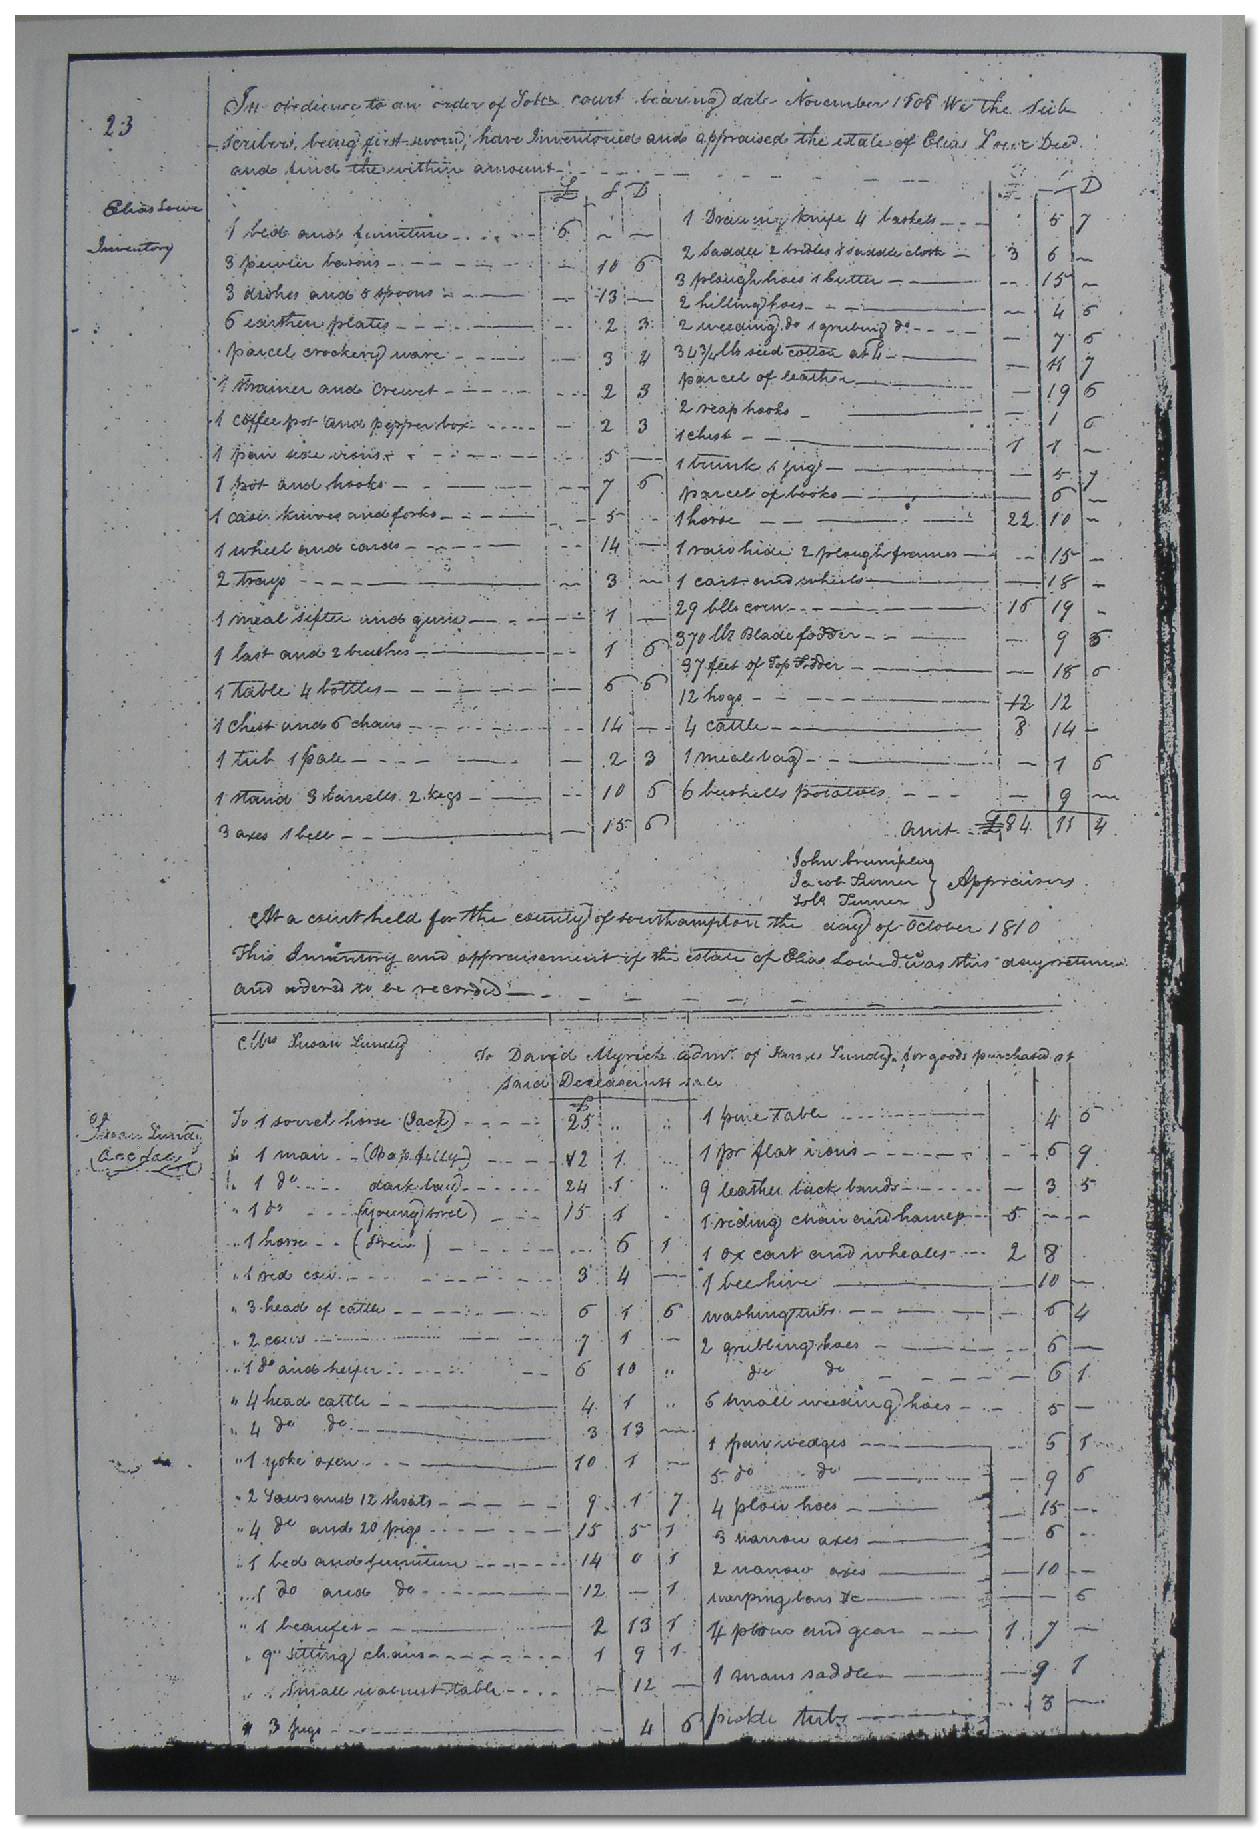 23
In obedience to an order of court bearing date November 1808 We the Sub
scribers, being first sworn, have Inventoried and appraised the estate of Elias Lowe Decd
and find the within amount
Elias Lowe
Inventory
£ S D
1 bed and furniture 6 - -
3 pewter basons - 10 6
3 dishes and 8 spoons - 13 -
6 earthen plates 2 3
parcel crockery ware 3 4
1 strainer and Crewet 2 3
1 coffee pot and pepper box - 2 3
1 pair side irons 5 -
1 pot and hooks - 7 6
1 case knives and forks - 5
1 wheel and cards 14 -
2 trays - 3 -
1 meal sifter and - 1 -
1 last and 2 brushes - 1 6
1 table 4 bottles - 6 6
1 chest and 6 chairs - 14 -
1 tub 1 pale - 2 3
1 stand 3 barrells 2 kegs - 10 6
3 axes 1 bell - 15 6
D
1 Drawing knife 4 baskets 5 7
2 Saddle 2 bridles & saddle cloth - 3 6 -
3 plough hoes 1 - 15 -
2 hilling hoes - 4 6
2 weeding do 1 grubing do 7 6
34 3/4 lb seed cotton at 4 - 11 7
parcel of leather - 19 6
2 reap hooks - 1 6
1 chest - 1 1 -
1 trunk 1 jug - 5 7
parcel of books - 6 -
1 horse 22 10 -
1 raw hide 2 plough frames - 15 -
1 cart and wheels - 18 -
29 blls corn 16 19 -
370 lb Blade fodder - 9 3
97 feet of Top Fodder - 18 6
12 hogs 12 12
4 cattle 8 14 -
1 meal bag - 1 6
6 bushells potatoes - 9 -
Amt £84 11 4
John
Jacob Turner
Turner
Appraisers
At a court held for the county of Southampton the day of October 1810
This Inventory and appraisement of the estate of Elias Lowe decd was this day returned
and ordered to be recorded
Mrs Susan Lundy
To David Myrick admr. of Lundy for goods purchased at
said sale
Susan Lundy
£
To 1 sorrel horse (Jack) 25 " "
" 1 mair 42 1
" 1 do dark bay 24 1 "
" 1 do (young sorel) 15 1
" 1 horse 6 1
" 1 red cow 3 4 -
" 3 head of cattle 6 1 6
" 2 cows 7 1 -
" 1 do and heifer 6 10 "
" 4 head cattle 4 1 "
" 4 do do 3 13 -
" 1 yoke oxen 10 1 -
" 2 Sows and 12 shoats 9 1 7
" 4 do and 20 pigs 15 5 1
" 1 bed and furniture 14 0 1
" 1 do and do 12 - 1
" 1 beaufet 2 13 1
" 9 sitting chairs 1 9 1
" Small walnut table - 12 -
" 3 jugs 4 6
1 pine table 4 6
1 pr flat irons 6 9
9 leather back bands - 3 5
1 riding chair and harness 5 - -
1 ox cart and wheales 2 8
1 bee hive 10 -
washing tubs 6 4
2 grubbing hoes 6 -
do do 6 1
6 small weeding hoes - 5 -
1 pair wedges 5 1
5 do do - 9 6
4 plow hoes 15 -
3 narrow axes - 6 -
2 narrow axes - 10 -
warping bars &c - - 6
4 plows and gear 1 7 -
1 mans saddle 9 1
pickle tubs 3 -